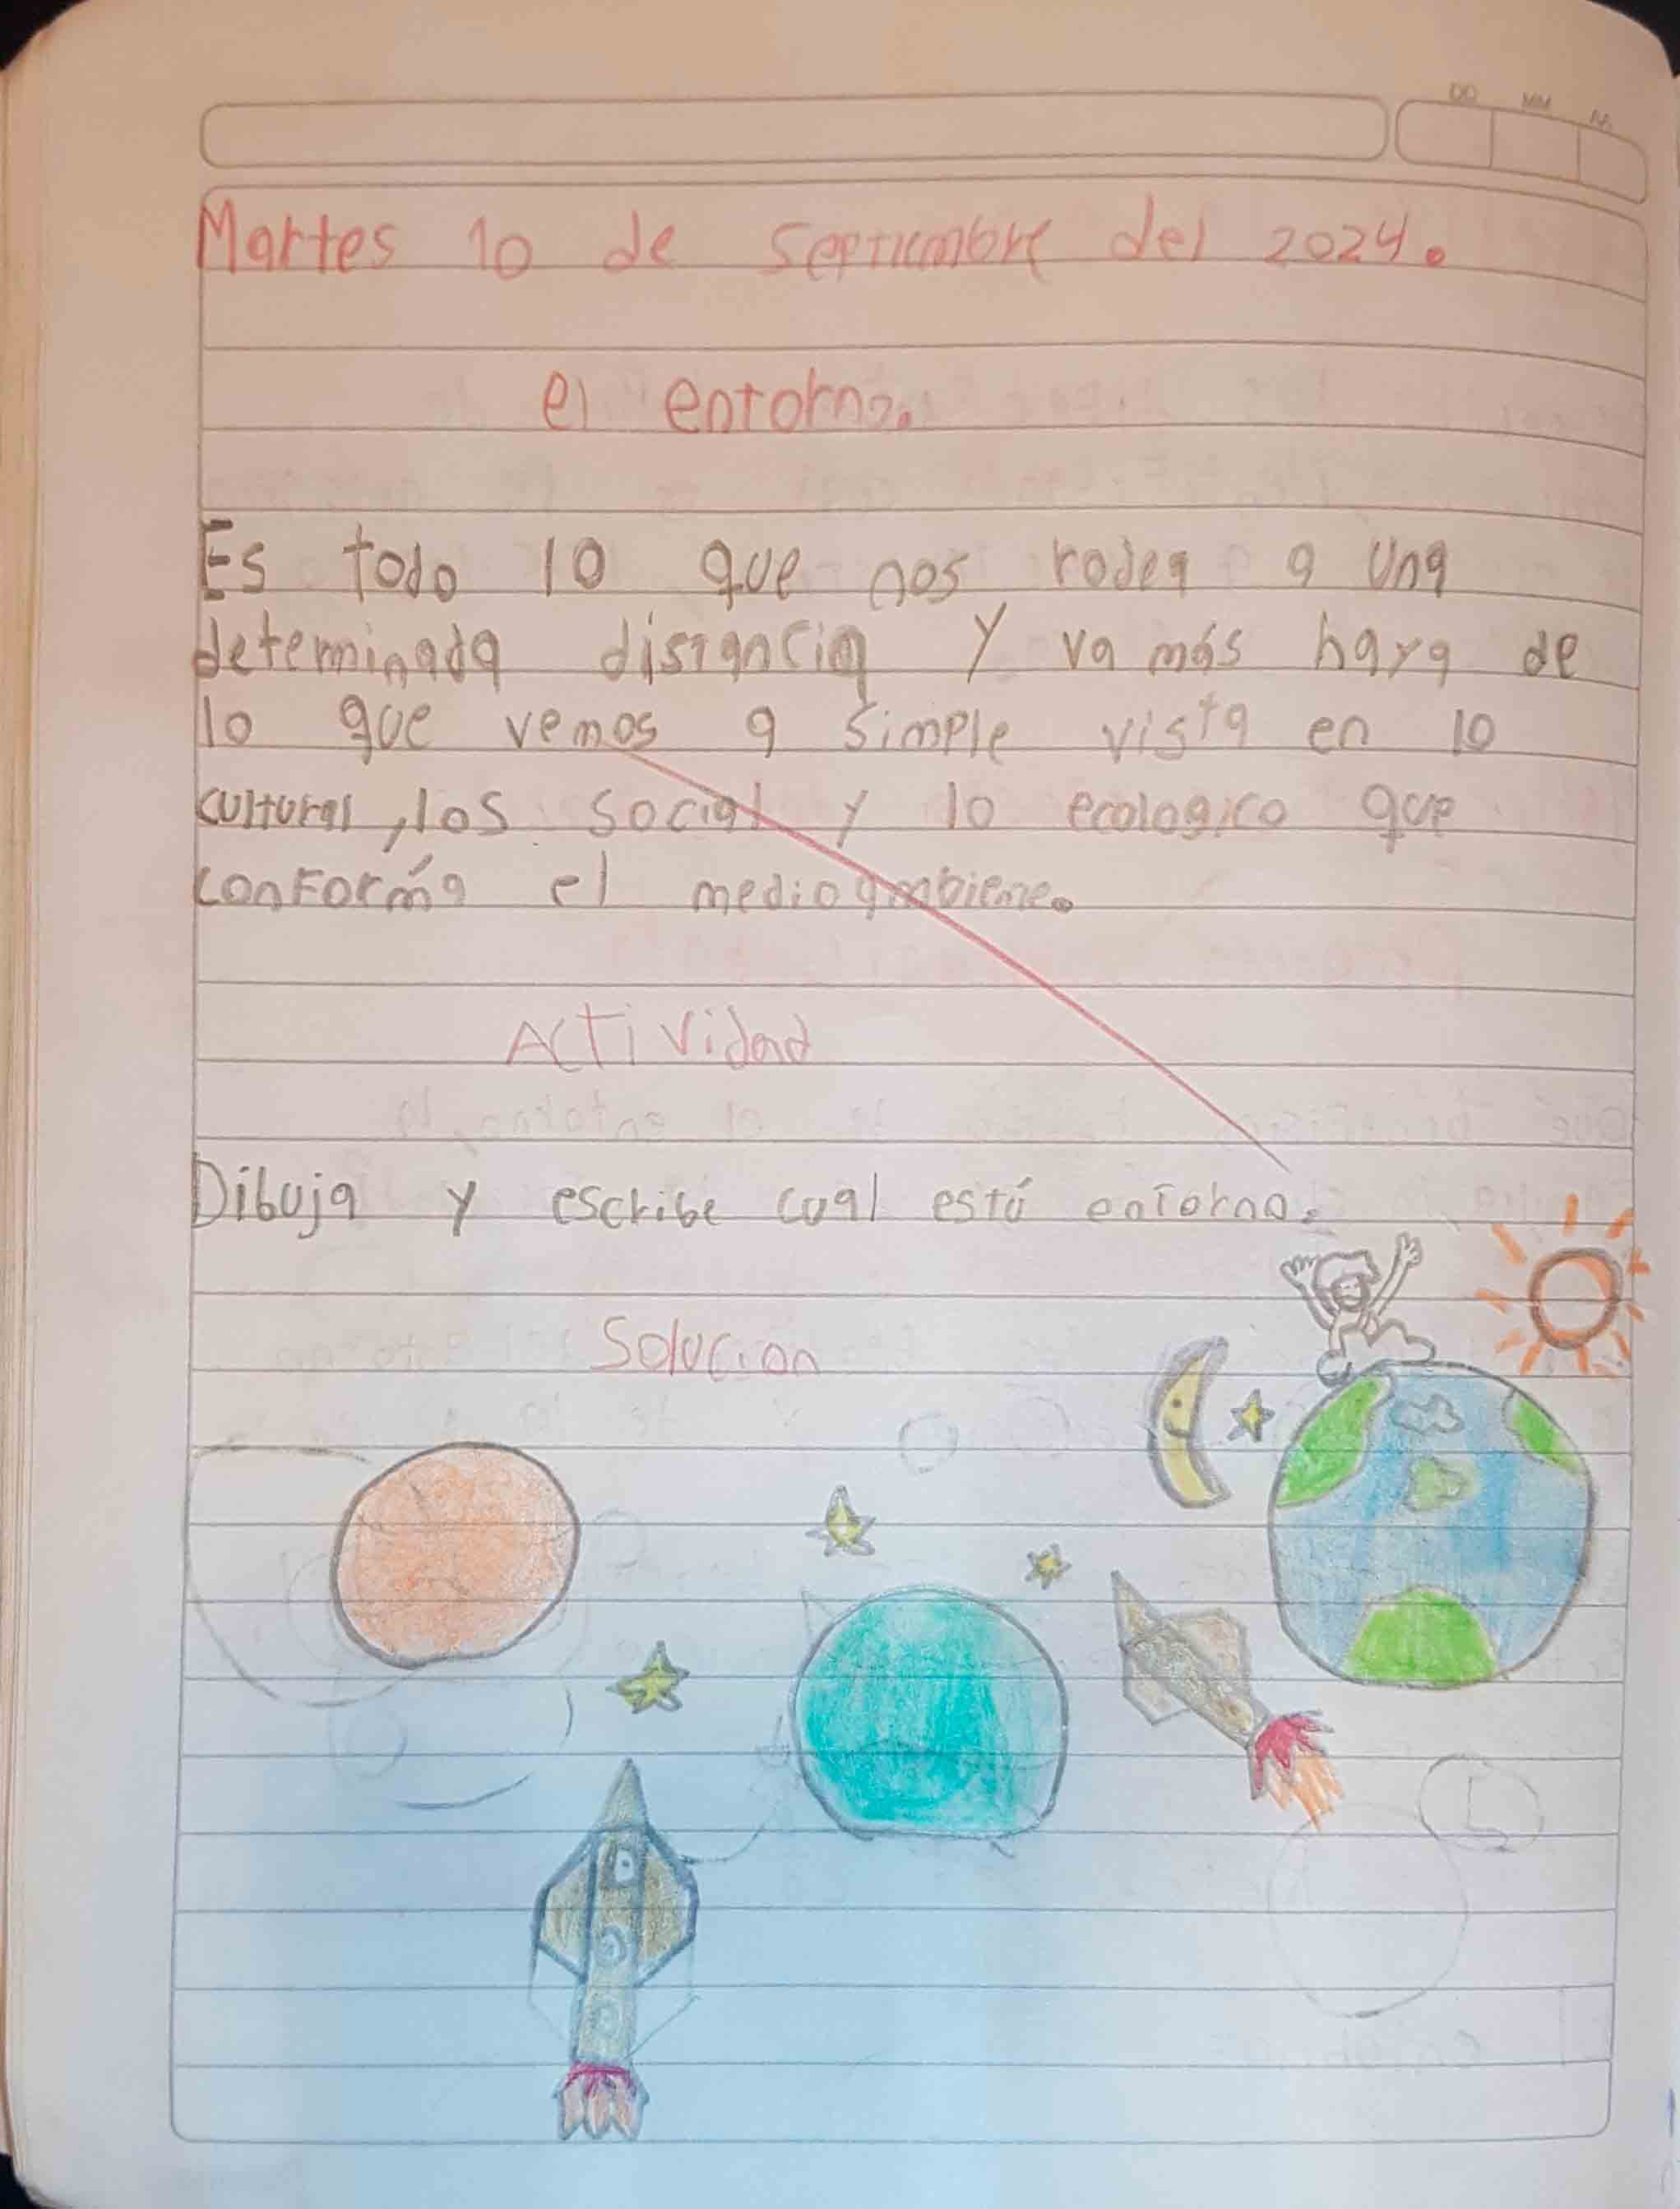 DD MM AA
Martes 10 de Septiembre del 2024.
el entorno.
Es todo lo que nos rodea a una
determinada distancia y va más haya de
lo que vemos a simple vista en lo
cultural, los social y lo ecologico que
conformá el medio ambiene.
Actividad
Dibuja y escribe cual está entorno.
Solucion